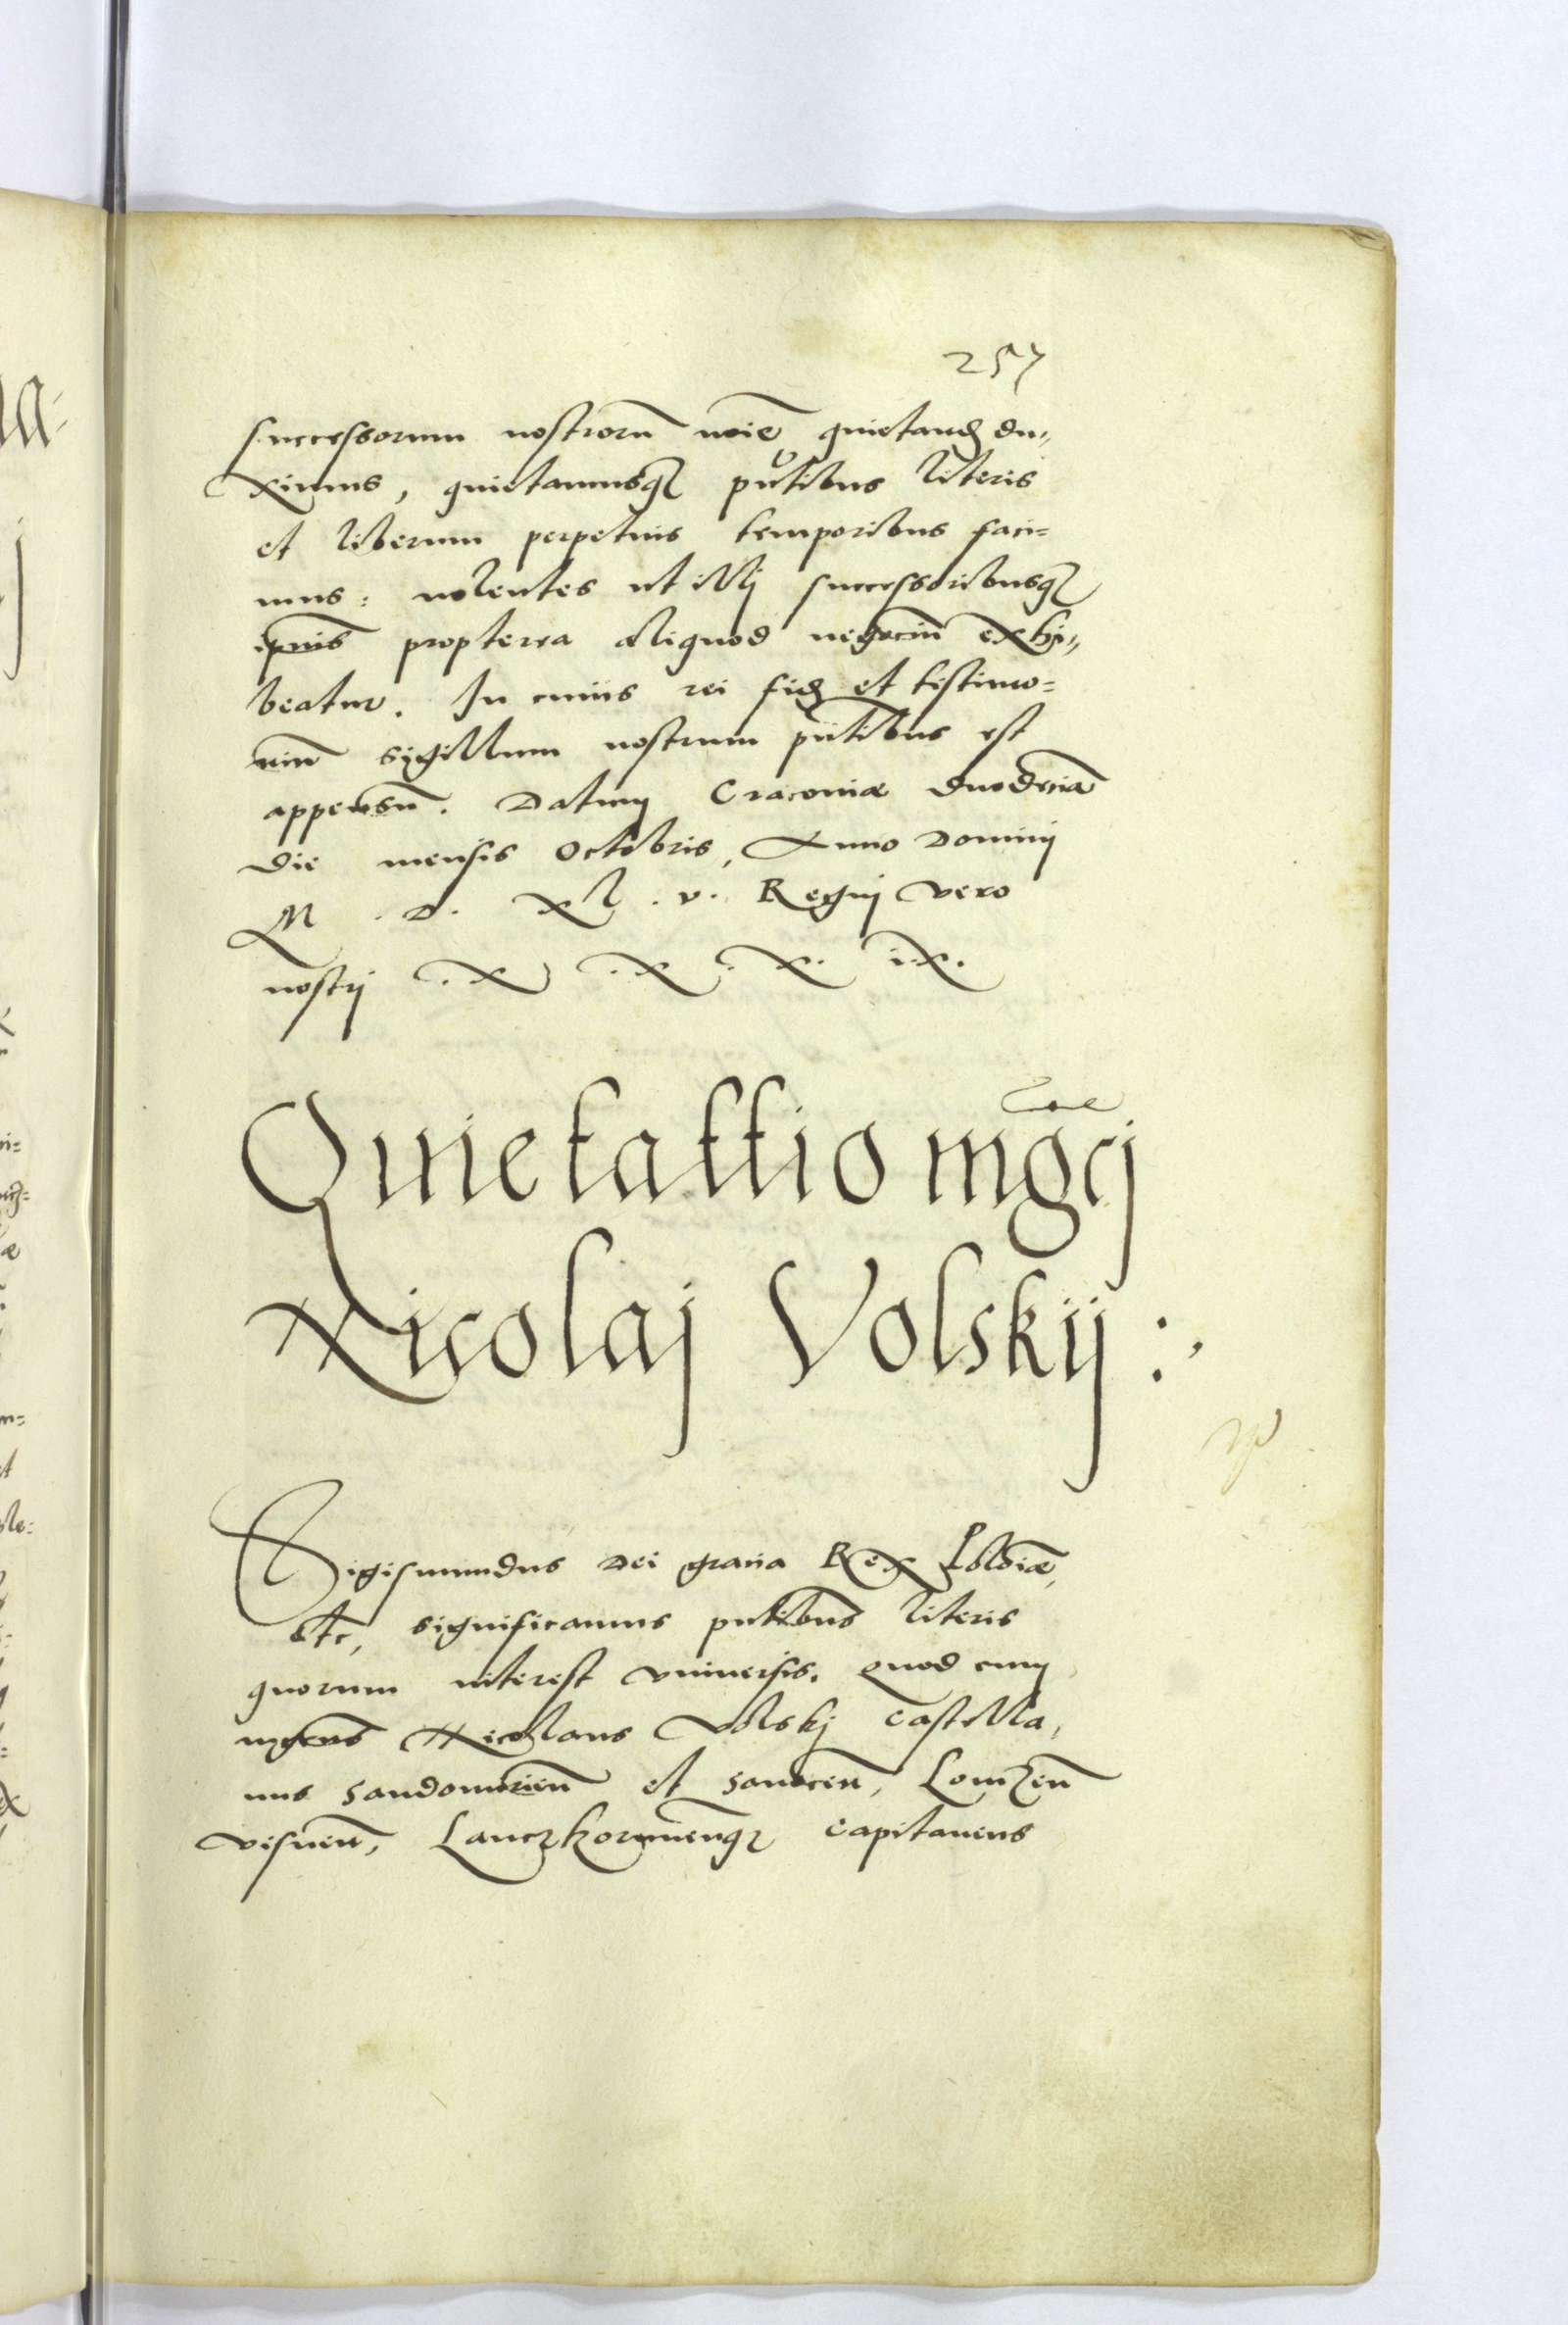 257
successorum nostrorū noīe quietand du„
ximus, quietamusq3 pūtibus literis
et liberum perpetuis temporibus faci=
mus: nolentes ut illj successoribusq3
ipīus propterea aliquod negociū exhi„
beatur. In cuius rei fid et testimo=
niū sigillum nostrum pūtibus est
appensū. Datum Cracouiæ duodecīa
die mensis Octobris, Anno Dominj
M . D . Xl . v . Regnj vero
nostrj . X . X . X . i.X.
Quietattio mgcj
Nicolaj Volskij :,
Sigismundus Dei gratia Rex Poloīæ,
etc, significamus pūtibus literis
quorum interest vniuersis. Quod cum
mgcus Nicolaus Volskj Castella,
nus Sandomirieñ et Sanoceñ, Lomzeñ
visneñ, Lanczkoruneñq3 Capitaneus